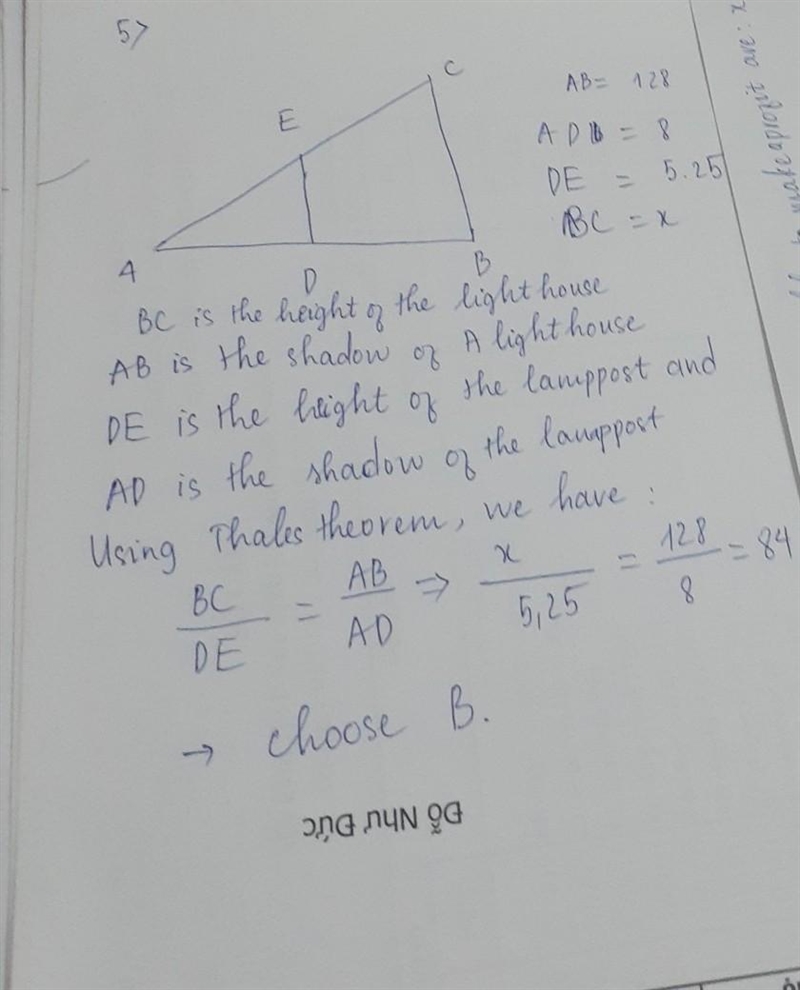 5>
C
E
A
D
B
AB = 128
AD = 8
DE = 5.25
BC = x
BC is the height of the lighthouse
AB is the shadow of A lighthouse
DE is the height of the lamppost and
AD is the shadow of the lamppost
Using Thales theorem, we have :
BC/DE = AB/AD => x/5,25 = 128/8 = 84
→ choose B.
Đỗ Như Đức
make a profit are: x